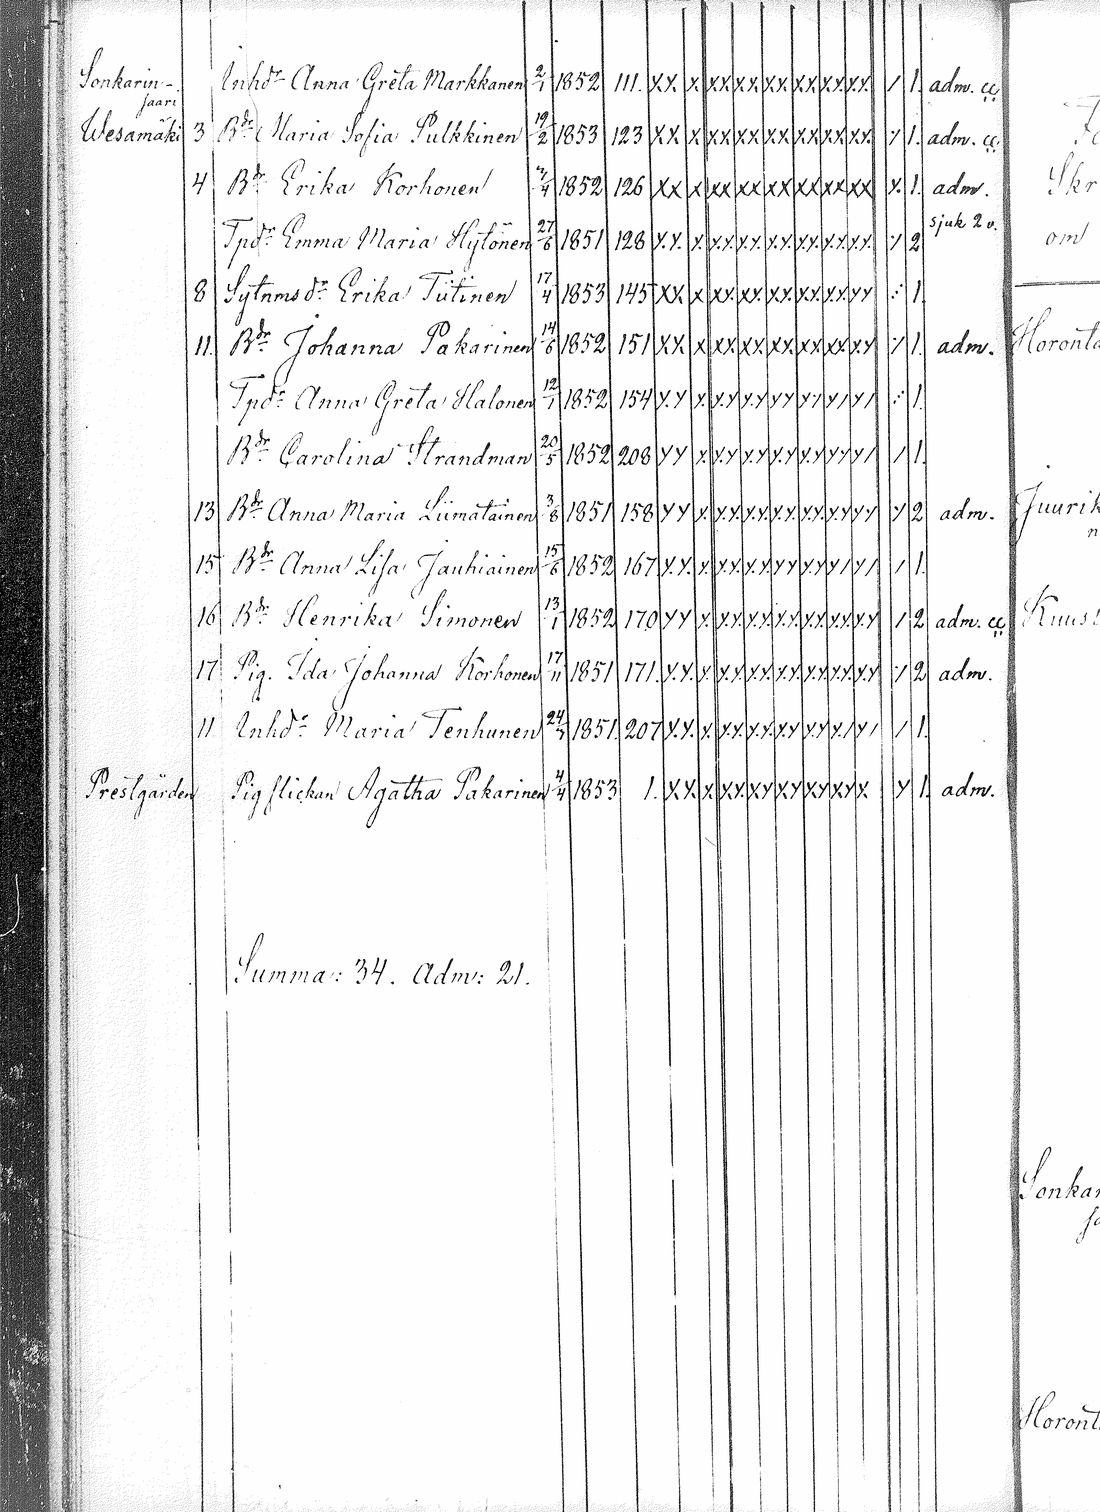 Sonkarin- Inhdr Anna Greta Markkanen 2/1 1852 111. XX X XX XX XX XX XX XX / 1. adm. cc
saari
Wesamäki 3 Bdr Maria Sofia Pulkkinen 19/2 1853 123 XX X XX XX XX XX XX XX Y 1. adm. cc
4 Bdr Erika Korhonen 7/4 1852 126 XX X XX XX XX XX XX XX X. 1. adm.
sjuk 2 v.
Tpdr Emma Maria Hytönen 27/6 1851 128 XX X XX XX XX XX XX XX Y 2
8 Sytnmsdr Erika Tiitinen 17/4 1853 145 XX X XX XX XX XX XX YY 1.
11. Bdr Johanna Pakarinen 14/6 1852 151 XX X XX XX XX XX XX XY Y 1. adm. Horonta
Tpdr Anna Greta Halonen 12/1 1852 154 YY X YY YY YY Y/ Y/ Y/ 1.
Bdr Carolina Strandman 20/5 1852 208 YY X YY YY YY YY YY Y/ / 1.
13 Bdr Anna Maria Liimatainen 3/8 1851 158 YY X XX XX XX XX YY YY Y 2 adm. Juurik
15 Bdr Anna Lisa Jauhiainen 15/6 1852 167 YY X XX XX YY YY Y/ Y/ / 1.
16 Bdr Henrika Simonen 13/1 1852 170 YY X XX XX XX XX XX XY / 2 adm. cc
17 Pig. Ida Johanna Korhonen 17/11 1851 171. YY X YY XX XX XX XX YY Y 2 adm.
11 Inhdr Maria Tenhunen 24/7 1851 207 YY X XX XX YY YY Y/ Y/ / 1.
Prestgården Pigflickan Agatha Pakarinen 4/4 1853 1. XX X XX XY XX XY XY X Y 1. adm.
Summa: 34. Adm: 21.
Skr
om
Sonkar
Horont